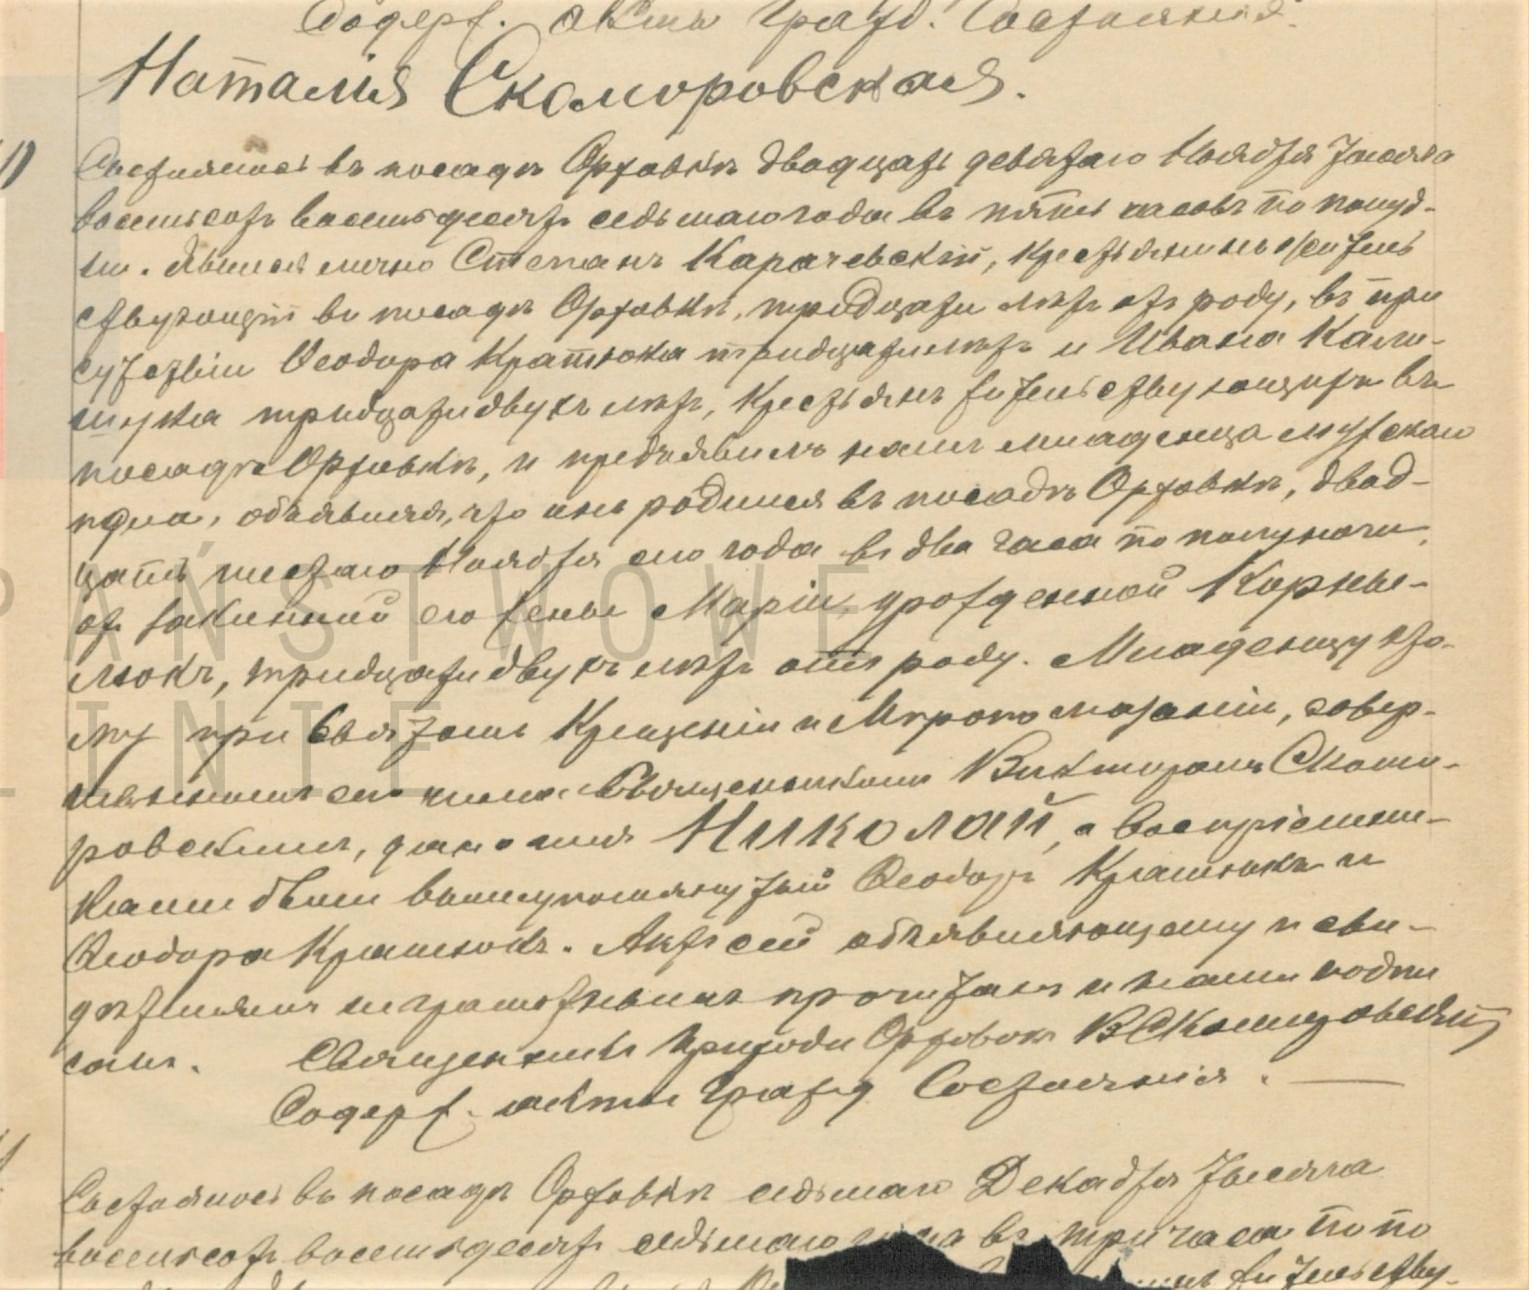 Содерж. акты Гражд. Состоянія.
Наталія Скоморовская.
Состоялось въ посадѣ Орховкѣ двадцать девятаго Ноября тысяча
восемьсотъ восемьдесятъ седьмаго года въ пять часовъ по полуд-
ни. Явился лично Степанъ Карачевскій, крестьянинъ житель
ствующій въ посадѣ Орховкѣ, тридцати лѣтъ отъ роду, въ при
сутствіи Ѳеодора Кратюка тридцати лѣтъ и Ивана
тридцати двухъ лѣтъ, крестьянъ жительствующихъ въ
посадѣ Орховкѣ, и предъявилъ намъ младенца мужскаго
пола, объявляя, что онъ родился въ посадѣ Орховкѣ, двад-
цать шестаго Ноября сего года въ два часа по полуночи,
отъ законной его жены Маріи, урожденной Корнѣ-
люкъ, тридцати двухъ лѣтъ отъ роду. Младенцу это-
му при Святомъ Крещеніи и Мѵропомазаніи, совер-
шенномъ сего числа Священникомъ Викторомъ Скомо-
ровскимъ, дано имя Николай, а воспріемни-
ками были вышеупомянутый Ѳеодоръ Кратюкъ и
Ѳеодора Кратюкъ. Актъ сей объявляющему и сви-
дѣтелямъ неграмотнымъ прочитанъ и нами подпи
санъ. Священникъ прихода Орховок ВСкоморовскій
Содерж. акты Гражд Состоянія.
Состоялось въ посадѣ Орховкѣ седьмаго Декабря тысяча
восемьсотъ восемьдесятъ седьмаго года въ три часа по по
жительству-
PAŃSTWOWE